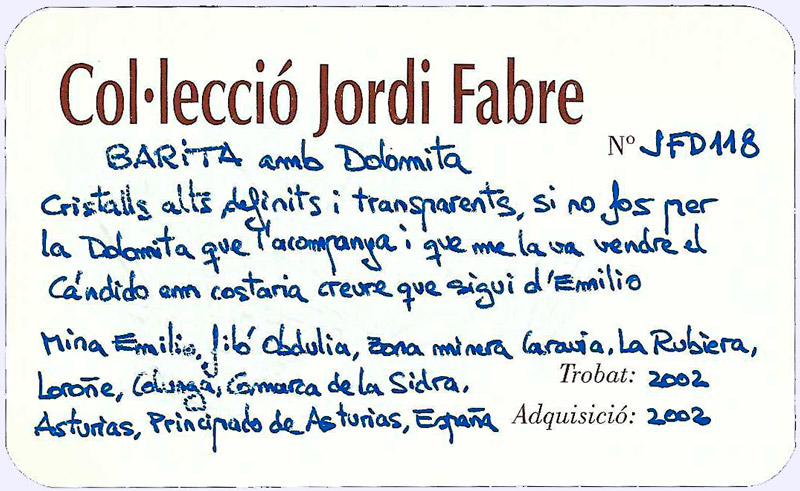 Col·lecció Jordi Fabre
BARiTA amb Dolomita Nº JFD118
Cristalls alts definits i transparents, si no fos per
la Dolomita que l'acompanya i que me la va vendre el
Cándido em costaria creure que sigui d'Emilio
Mina Emilio, filó Obdulia, zona minera Caravia, La Rubiera,
Loroñe, Colunga, Comarca de la Sidra,
Trobat: 2002
Asturias, Principado de Asturias, España
Adquisició: 2002